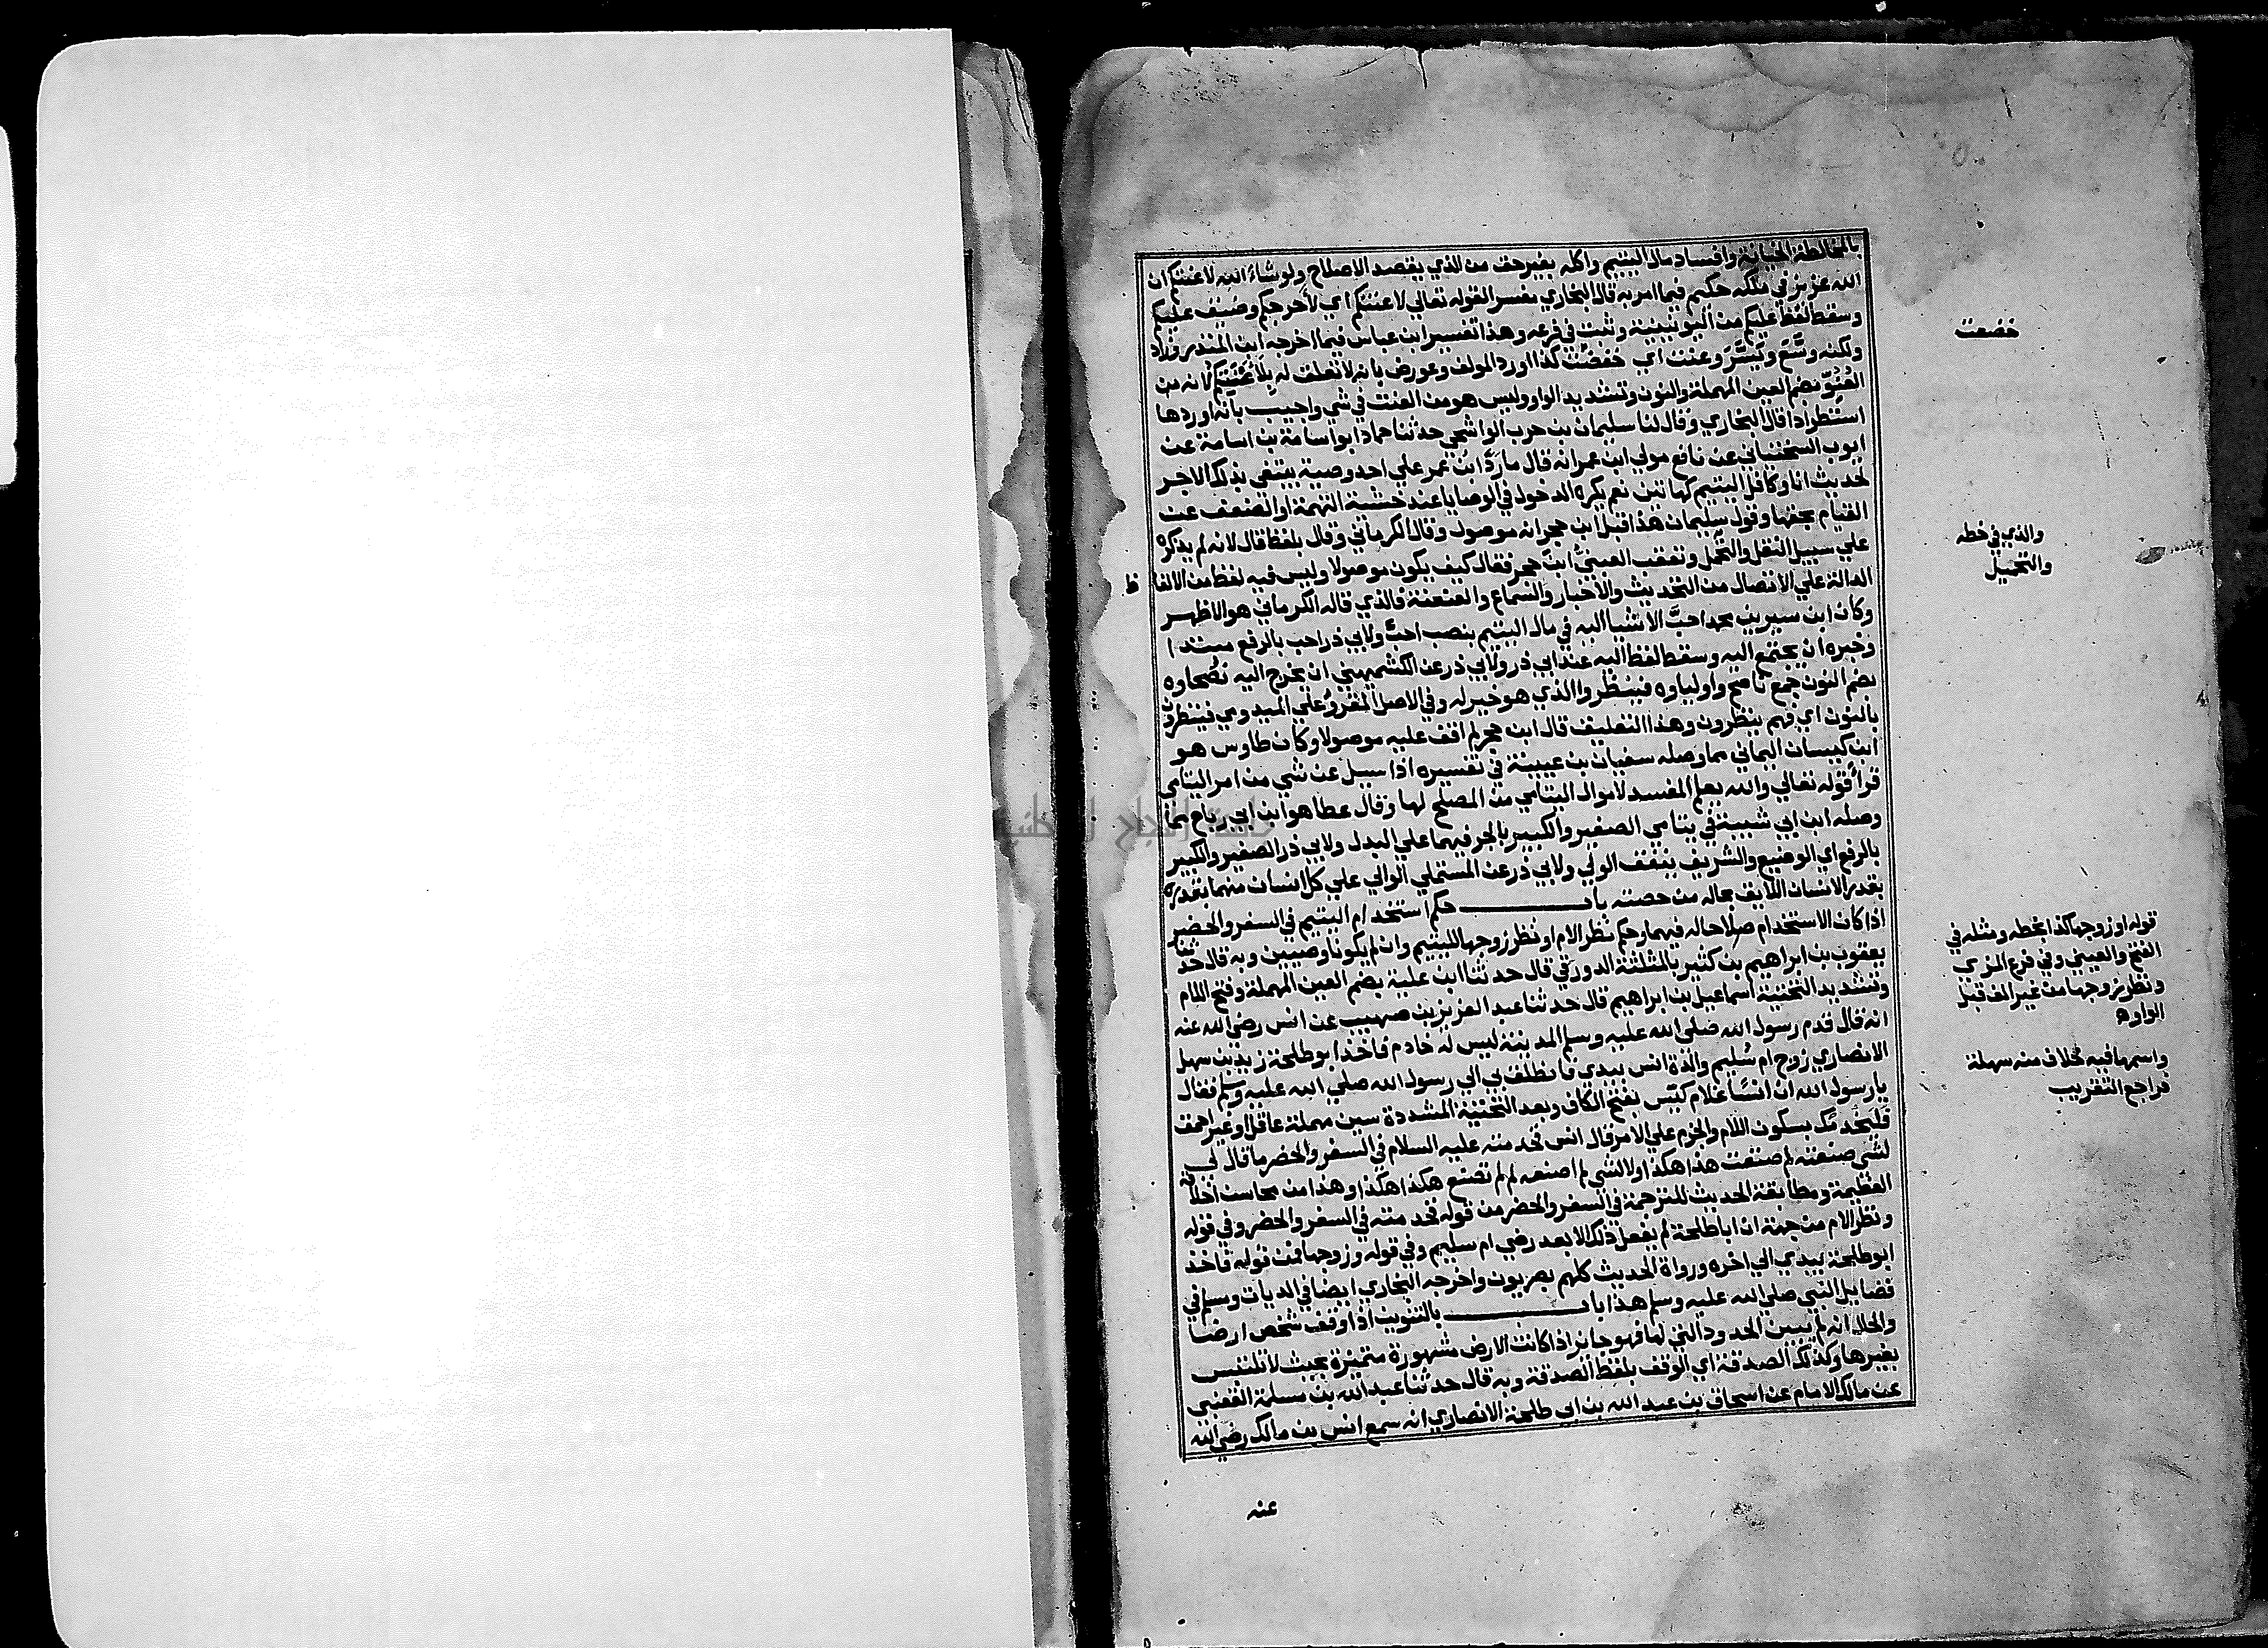 بالمخالطة الخيانة وافساد مال اليتيم واكله بغير حق من الذي يقصد الاصلاح ولو شاء الله لاعنتكم ان
الله عزيز في ملكه حكيم فيما امر به قال البخاري مفسرا لقوله تعالي لاعنتكم اي لاحرجكم وضيق عليكم
وسقط لفظ عليكم من اليونينية وثبت في فرعه وهذا تفسير ابن عباس فيما اخرجه ابن المنذر وزاد
ولكنه وسَّع ويَسَّرَ وعنت اي خضعت كذا اورد المولف وعورض بانه لا تعلق له بلاعنتكم لانه من
العُنُوّ بضم العين المهملة والنون وتشديد الواو وليس هو من العنت في شي واجيب بانه اوردها
استطرادا قال البخاري وقال لنا سليمان بن حرب الواشحي حدثنا حماد ابو اسامة بن اسامة عن
ايوب السختياني عن نافع مولي ابن عمر انه قال ما رد ابن عمر علي احد وصية يبتغي بذلك الاجر
لحديث انا وكافل اليتيم كهاتين نعم يكره الدخول في الوصايا عند خشية التهمة او الضعف عن
القيام بحقها وقول سليمان هذا قيل ابن حجر انه موصول وقال الكرماني وقال بلفظ قال لانه لم يذكره
علي سبيل النقل والتحمل وتعقب العينيُّ ابنَ حجر فقال كيف يكون موصولا وليس فيه لفظ من الالفا ظ
الدالة علي الاتصال من التحديث والاخبار والسماع والعنعنة فالذي قاله الكرماني هو الاظهر
وكان ابن سيرين محمد احبَّ الاشيا اليه في مال اليتيم بنصب احبَّ ولابي ذر احب بالرفع مبتدا
وخبره ان يجتمع اليه وسقط لفظ اليه عند ابي ذر ولابي ذر عن الكشميهني ان يخرج اليه نصحاوه
بضم النون جمع ناصح واولياوه فينظروا الذي هو خير له وفي الاصل المقروء علي الميدومي فينظرون
بالنون اي فهم ينظرون وهذا التعليق قال ابن حجر لم اقف عليه موصولا وكان طاوس هو
ابن كيسان اليماني مما وصله سفيان بن عيينة في تفسيره اذا سيل عن شي من امر اليتامي
قرا قوله تعالي والله يعلم المفسد لاموال اليتامي من المصلح لها وقال عطا هو ابن ابي رباح مما
وصله ابن ابي شيبة في يتامي الصغير والكبير بالجر فيهما علي البدل ولابي ذر الصغير والكبير
بالرفع اي الوضيع والشريف ينفق الولي ولابي ذر عن المستملي الوالي علي كل انسان منهما بقدره
بقدر الانسان اللايق بحاله من حصته باب حكم استخدام اليتيم في السفر والحضر
اذا كان الاستخدام صلاحا له فيهما وحكم نظر الام او نظر زوجها لليتيم وان لم يكونا وصيين وبه قال حدثنا
يعقوب بن ابراهيم بن كثير بالمثلثة الدورقي قال حدثنا ابن علية بضم العين المهملة وفتح اللام
وتشديد التحتية اسماعيل بن ابراهيم قال حدثنا عبد العزيز بن صهيب عن انس رضي الله عنه
انه قال قدم رسول الله صلي الله عليه وسلم المدينة ليس له خادم فاخذ ابو طلحة زيد بن سهل
الانصاري زوج ام سُليم والدة انس بيدي فانطلق بي الي رسول الله صلي الله عليه وسلم فقال
يا رسول الله ان انسًا غلام كيّس بفتح الكاف وبعد التحتية المشددة سين مهملة عاقل او غير احمق
فليخدمك بسكون اللام والجزم علي الامر قال انس فخدمته عليه السلام في السفر والحضر ما قال لي
لشي صنعته لم صنعت هذا هكذا ولا لشي لم اصنعه لم لم تصنع هكذا هكذا وهذا من محاسن اخلاقه
العظيمة ومطابقة الحديث للترجمة في السفر والحضر من قوله فخدمته في السفر والحضر وفي قوله
ونظر الام من جهة ان ابا طلحة لم يفعل ذلك الا بعد رضي ام سليم وفي قوله وزوجها فمن قوله فاخذ
ابو طلحة بيدي الي اخره ورواة الحديث كلهم بصريون واخرجه البخاري ايضا في الديات ومسلم في
فضايل النبي صلي الله عليه وسلم هذا باب بالتنوين اذا وقف شخص ارضا
والحال انه لم يبين الحدود التي لها فهو جايز اذا كانت الارض مشهورة متميزة بحيث لا تلتبس
بغيرها وكذلك الصدقة اي الوقف بلفظ الصدقة وبه قال حدثنا عبد الله بن مسلمة القعنبي
عن مالك الامام عن اسحاق بن عبد الله بن ابي طلحة الانصاري انه سمع انس بن مالك رضي الله
عنه
خضعت
والذي في خطه
والتحميل
قوله او زوجها كذا بخطه ومثله في
الفتح والعيني وفي فرع المزي
ونظر زوجها من غير الف قبل
الواو ه
واسمها فيه خلاف منه سهلة
فراجع التقريب